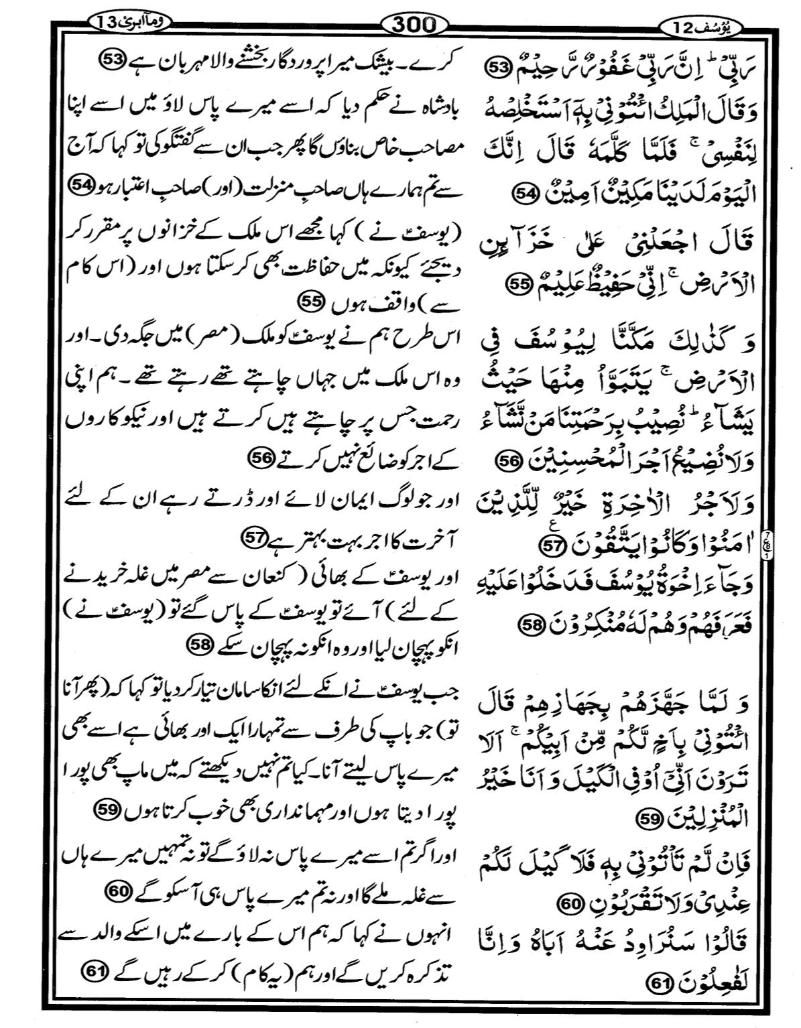 یُوسُف 12
300
وماۤ ابرئ 13
رَبِّیْ ؕ اِنَّ رَبِّیْ غَفُوْرٌ رَّحِیْمٌ 53
وَقَالَ الْمَلِكُ ائْتُوْنِیْ بِهٖۤ اَسْتَخْلِصْهُ
لِنَفْسِیْ ۚ فَلَمَّا كَلَّمَهٗ قَالَ اِنَّكَ
الْیَوْمَ لَدَیْنَا مَكِیْنٌ اَمِیْنٌ 54
قَالَ اجْعَلْنِیْ عَلٰی خَزَآىِٕنِ
الْاَرْضِ ۚ اِنِّیْ حَفِیْظٌ عَلِیْمٌ 55
وَ كَذٰلِكَ مَكَّنَّا لِیُوْسُفَ فِی
الْاَرْضِ ۚ یَتَبَوَّاُ مِنْهَا حَیْثُ
یَشَآءُ ؕ نُصِیْبُ بِرَحْمَتِنَا مَنْ نَّشَآءُ
وَلَا نُضِیْعُ اَجْرَ الْمُحْسِنِیْنَ 56
وَلَاَجْرُ الْاٰخِرَةِ خَیْرٌ لِّلَّذِیْنَ
اٰمَنُوْا وَكَانُوْا یَتَّقُوْنَ 57 ع
وَجَآءَ اِخْوَةُ یُوْسُفَ فَدَخَلُوْا عَلَیْهِ
فَعَرَفَهُمْ وَهُمْ لَهٗ مُنْكِرُوْنَ 58
وَ لَمَّا جَهَّزَهُمْ بِجَهَازِهِمْ قَالَ
ائْتُوْنِیْ بِاَخٍ لَّكُمْ مِّنْ اَبِیْكُمْ ۚ اَلَا
تَرَوْنَ اَنِّیْۤ اُوْفِی الْكَیْلَ وَ اَنَا خَیْرُ
الْمُنْزِلِیْنَ 59
فَاِنْ لَّمْ تَاْتُوْنِیْ بِهٖ فَلَا كَیْلَ لَكُمْ
عِنْدِیْ وَلَا تَقْرَبُوْنِ 60
قَالُوْا سَنُرَاوِدُ عَنْهُ اَبَاهُ وَاِنَّا
لَفٰعِلُوْنَ 61
کرے۔ بیشک میرا پروردگار بخشنے والا مہربان ہے 53
بادشاہ نے حکم دیا کہ اسے میرے پاس لاؤ میں اسے اپنا
مصاحب خاص بناؤں گا پھر جب ان سے گفتگو کی تو کہا کہ آج
سے تم ہمارے ہاں صاحبِ منزلت (اور) صاحبِ اعتبار ہو 54
(یوسفؑ نے) کہا مجھے اس ملک کے خزانوں پر مقرر کر
دیجئے کیونکہ میں حفاظت بھی کر سکتا ہوں اور (اس کام
سے) واقف ہوں 55
اس طرح ہم نے یوسفؑ کو ملک (مصر) میں جگہ دی۔ اور
وہ اس ملک میں جہاں چاہتے تھے رہتے تھے۔ ہم اپنی
رحمت جس پر چاہتے ہیں کرتے ہیں اور نیکوکاروں
کے اجر کو ضائع نہیں کرتے 56
اور جو لوگ ایمان لائے اور ڈرتے رہے ان کے لئے
آخرت کا اجر بہت بہتر ہے 57
اور یوسفؑ کے بھائی (کنعان سے مصر میں غلہ خریدنے
کے لئے) آئے تو یوسفؑ کے پاس گئے تو (یوسفؑ نے)
انکو پہچان لیا اور وہ انکو نہ پہچان سکے 58
جب یوسفؑ نے انکے لئے انکا سامان تیار کر دیا تو کہا کہ (پھر آنا
تو) جو باپ کی طرف سے تمہارا ایک اور بھائی ہے اسے بھی
میرے پاس لیتے آنا۔ کیا تم نہیں دیکھتے کہ میں ماپ بھی پورا
پورا دیتا ہوں اور مہمانداری بھی خوب کرتا ہوں 59
اور اگر تم اسے میرے پاس نہ لاؤ گے تو نہ تمہیں میرے ہاں
سے غلہ ملے گا اور نہ تم میرے پاس ہی آ سکو گے 60
انہوں نے کہا کہ ہم اس کے بارے میں اسکے والد سے
تذکرہ کریں گے اور ہم (یہ کام) کر کے رہیں گے 61